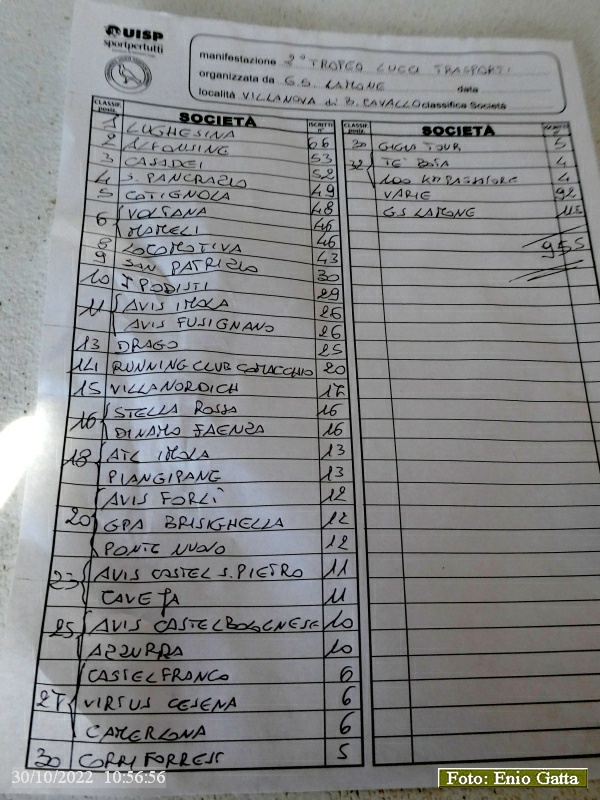 UISP
sportpertutti
manifestazione 2° TROFEO LUCCI TRASPORTI
organizzata da G.S. LAMONE data
località VILLANOVA di B. CAVALLO classifica Società
CLASSIF. SOCIETÀ ISCRITTI
1 LUGHESINA 66
2 ALFONSINE 53
3 CASADEI 52
4 S. PANCRAZIO 49
5 COTIGNOLA 48
6 VOLTANA 46
MAMELI 46
8 LOCOMOTIVA 43
9 SAN PATRIZIO 30
10 IPODISTI 29
11 AVIS IMOLA 26
AVIS FUSIGNANO 26
13 DRAGO 25
14 RUNNING CLUB COMACCHIO 20
15 VILLANORDICH 17
16 STELLA ROSSA 16
DINAMO FAENZA 16
18 ATL IMOLA 13
PIANGIPANE 13
20 AVIS FORLÌ 12
GPA BRISIGHELLA 12
PONTE NUOVO 12
23 AVIS CASTEL S. PIETRO 11
CAVEJA 11
25 AVIS CASTELBOLOGNESE 10
AZZURRA 10
27 CASTELFRANCO 6
VIRTUS CESENA 6
CAMERLONA 6
30 CORRI FORREST 5
CLASSIF. SOCIETÀ
30 GIGIA TOUR 5
32 TE BOTA 4
100 KM PASSATORE 4
VARIE 92
GS LAMONE 115
955
30/10/2022 10:56:56
Foto: Enio Gatta